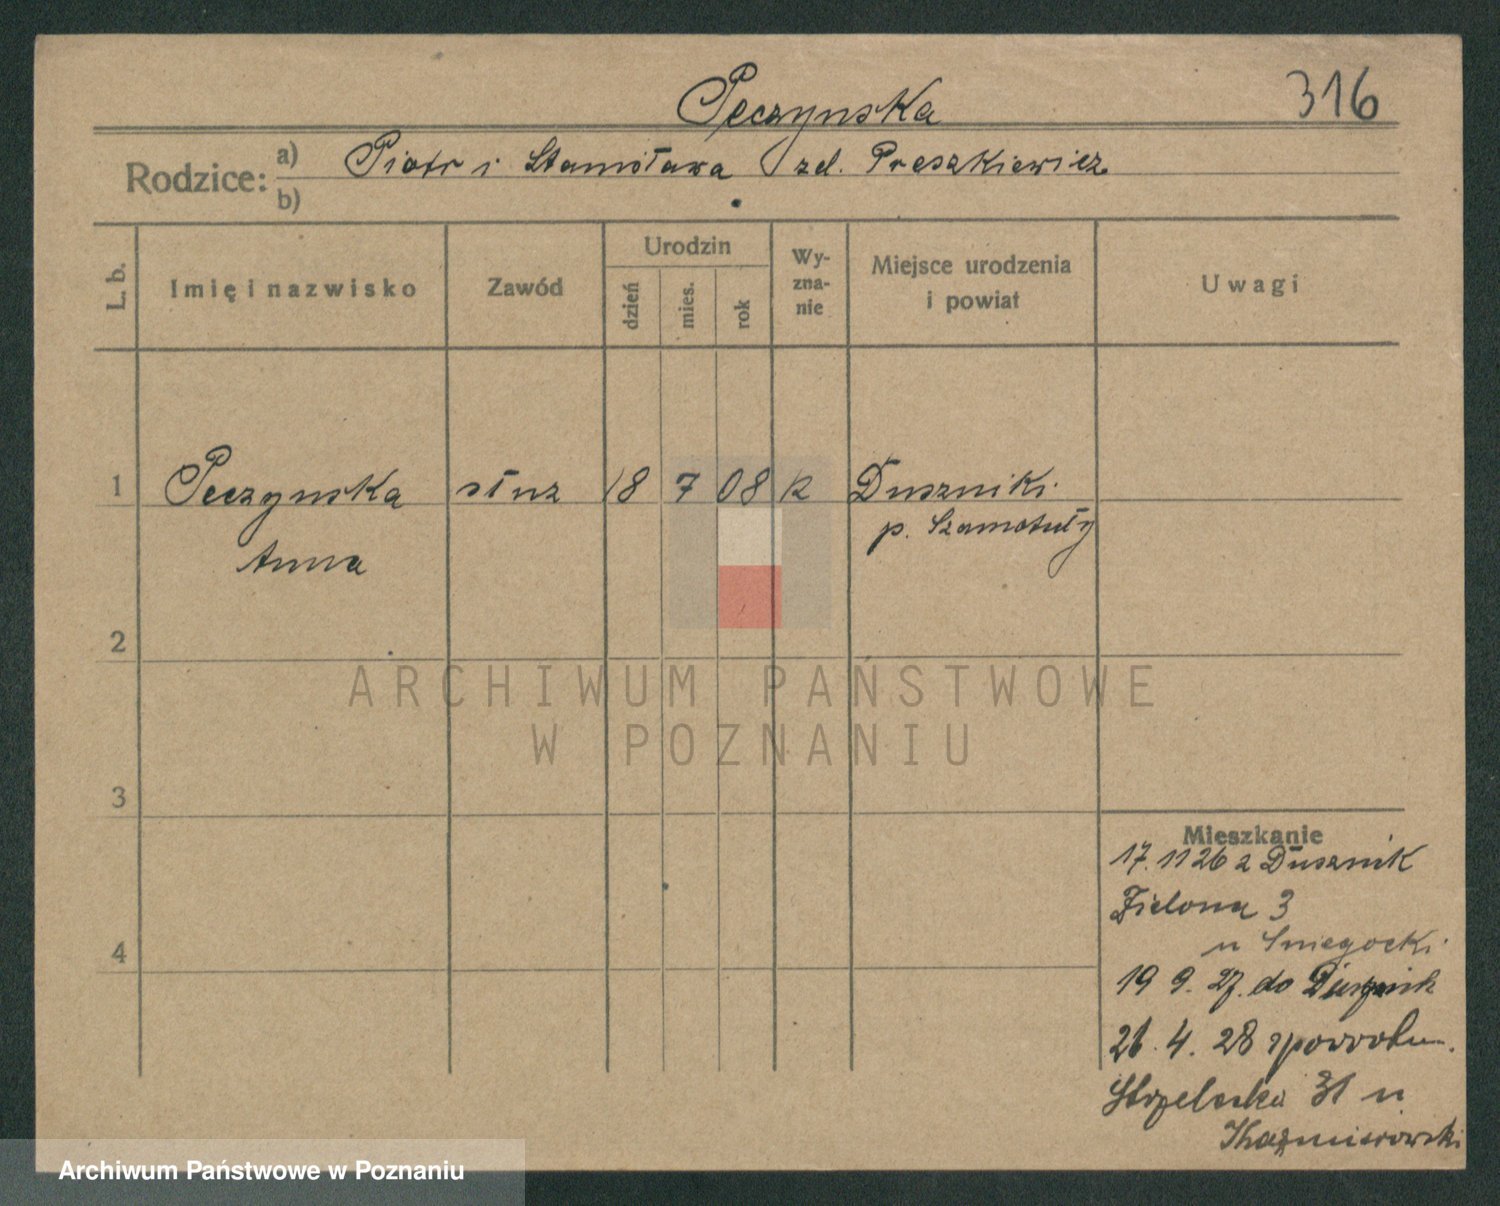 Pęczynska
316
Rodzice: a) Piotr i Stanisława zd. Preszkiewicz
b)
L. b.
Imię i nazwisko
Zawód
Urodzin
dzień
mies.
rok
Wy-
zna-
nie
Miejsce urodzenia
i powiat
Uwagi
1 Peczynska służ 18 7 08 k Duszniki
p. Szamotuły
Anna
2
ARCHIWUM PAŃSTWOWE
W POZNANIU
3
Mieszkanie
17.11 26 z Dusznik
Zielona 3
u Sniegocki
4
19 9. 27. do Dusznik
26. 4. 28 spowrotem.
Strzelecka 31 u
Kaźmierowski
Archiwum Państwowe w Poznaniu